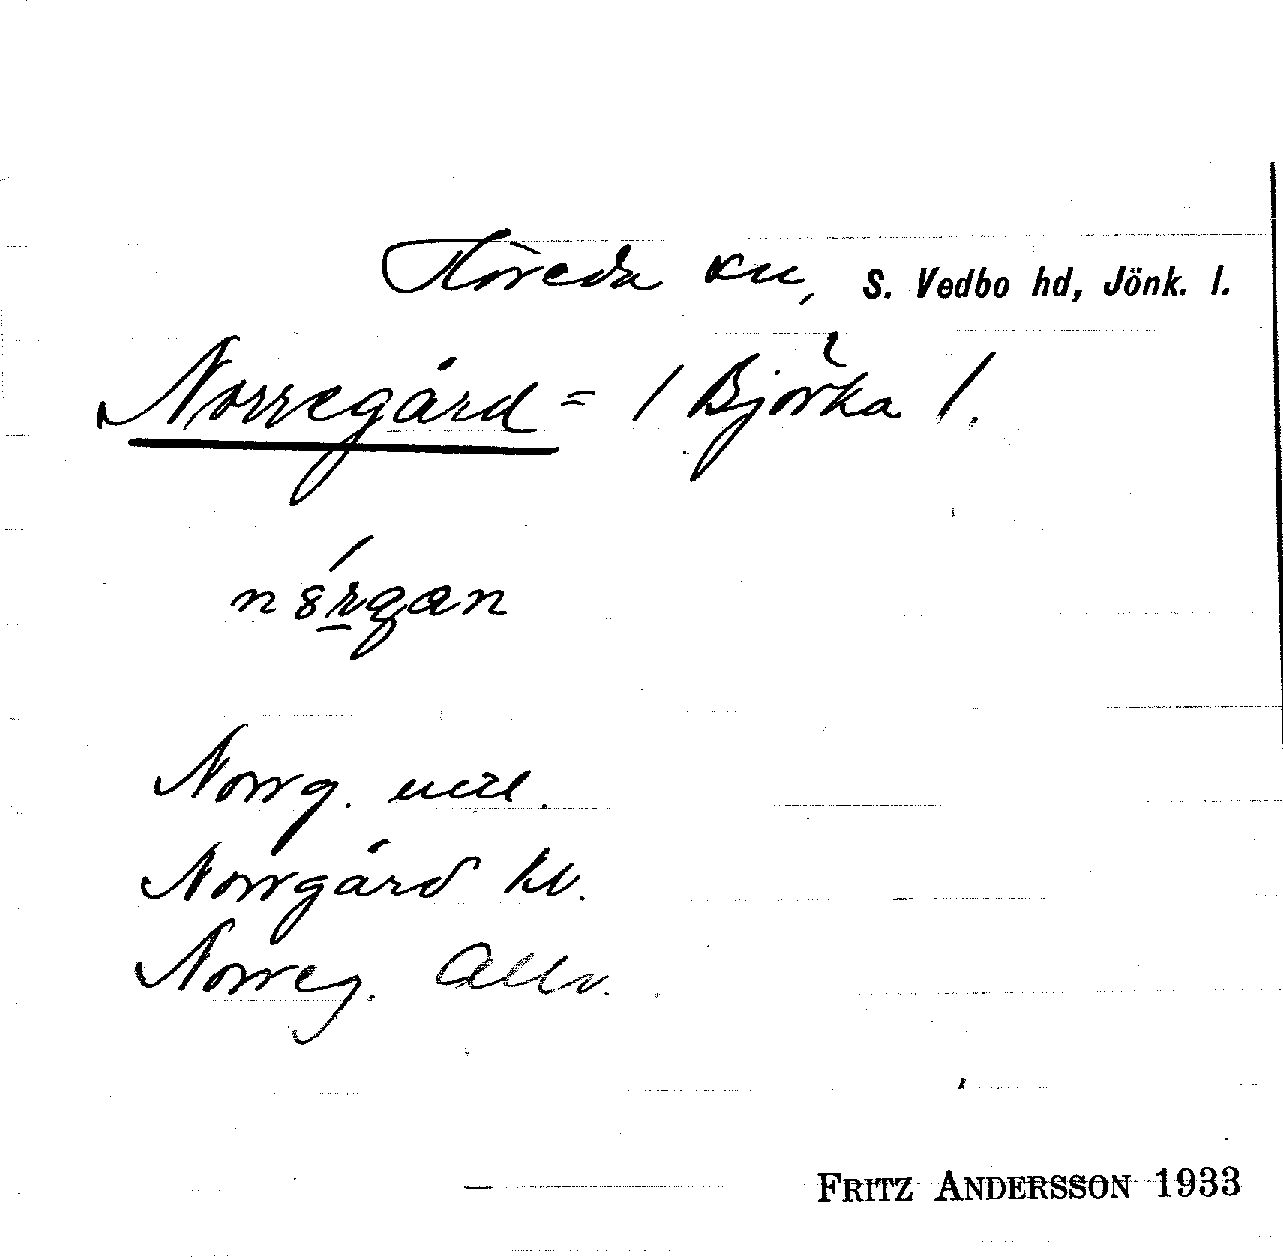 Höreda sn, S. Vedbo hd, Jönk. l.
Norregård = / Björka /.
Norrg. uml.
Norrgård kv.
Norreg. Allv.
FRITZ ANDERSSON 1933